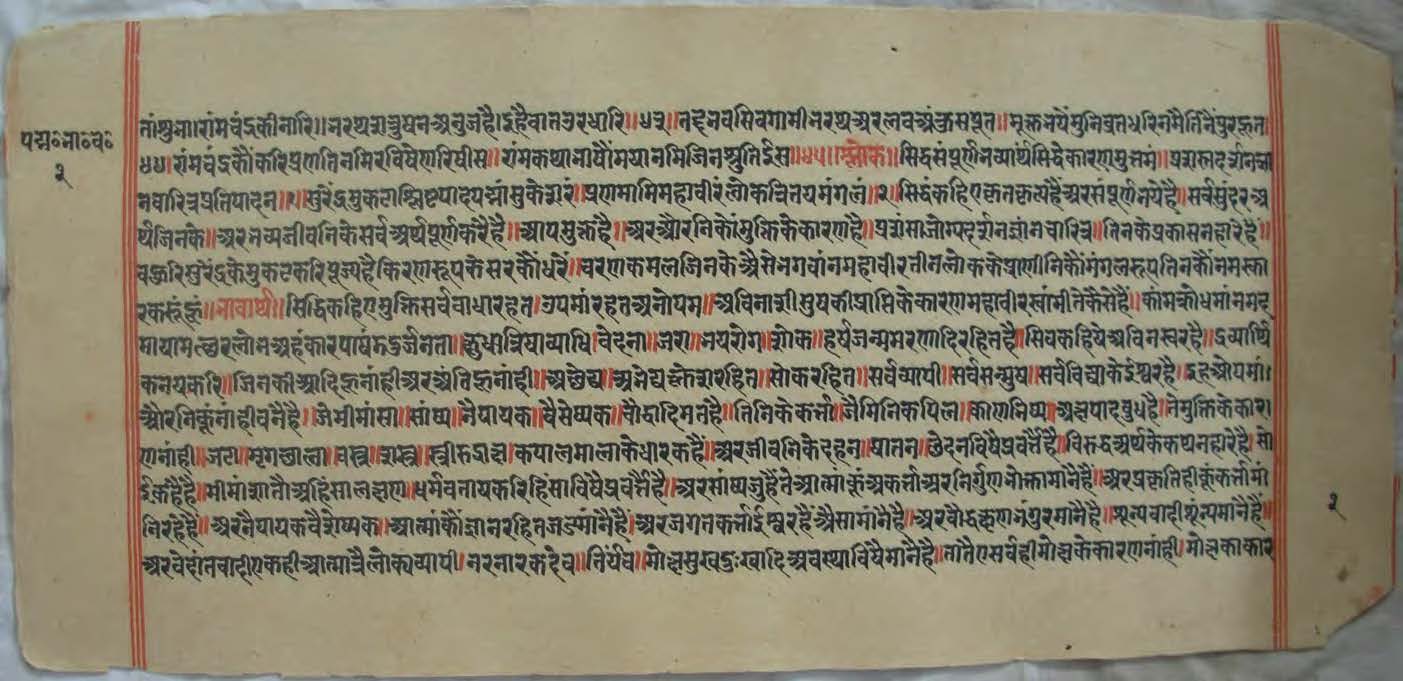 पद्म॰ना॰व॰
२
तांशुना॥रांमचंद्रकीनारि॥भरथशत्रुघनअनुजहै।इहैवातउरधारि॥४३॥तद्भवसिवगामीभरथअरलवअंकुसपूत॥मूक्तभयेमुनिव्रतधरिनमैतिनैंपुरहूत
४४॥रांमचंद्रकौंकरिप्रणतिनमिरविषेणरिषीस॥रांमकथाभाषौंमयानमिजिनश्रुतिईस॥४५॥श्लोक॥सिद्धसंपूर्णभव्यार्थंसिद्धेकारणमुत्तमं॥प्रशस्तदर्शनज्ञा
नचारित्रप्रतिपादन॥१॥सुरेंद्रमुकटाश्लिष्टपादपद्मांसुकेशरं॥प्रणमामिमहावीरंलोकत्रितयमंगलं॥२॥सिद्धकहिएकृतकृत्यहैंअरसंपूर्णभयेहै॥सर्वसुंदरअ
र्थजिनके॥अरभव्यजीवनिकेसर्वअर्थपूर्णकरैहै॥आपमुक्तहै॥अरऔरनिकोंमुक्तिकेकारणहै॥प्रशंसाजोग्यदर्शनज्ञांनचारित्र॥तिनकेप्रकासनहारेहै॥
वहुरिसुरेंद्रकेमुकटकरिपूज्यहैकिरणरूपकेसरकौंधरें॥चरणकमलजिनकेऐसेभगवांनमहावीरतीनलोककेप्राणीनिकौंमंगलरूपतिनकौंनमस्का
रकरूंहूं॥भावार्थ॥सिद्धिकहिएमुक्तिसर्ववाधारहत।उपमांरहतअनोपम॥अविनाशीसुषकीप्राप्तिकेकारणमहावीरस्वांमीतेकैसेहैं॥कांमक्रोधमांनमद
मायामत्छरलोभअहंकारपाषंडदुर्जनता॥छुधात्रिषाव्याधि॥वेदना॥जरा॥भयरोग॥शोक॥हर्षजन्ममरणादिरहितहै॥सिवकहियेअविनस्वरहै॥द्रव्यार्थि
कनयकरि॥जिनकीआदिहूनांहीअरअंतिहूनांही॥अछेद्य॥अभेद्यक्लेशरहित॥सोकरहित॥सर्वव्यापी॥सर्वसन्मुष॥सर्वविद्याकेईश्वरहै॥इहओपमां॥
औरनिकूंनांहीवनैहै॥जेमीमांसा॥सांष्य॥नैयायक॥वैसेष्यक॥वौद्धादिमतहै॥तिनिकेकर्त्ता॥जैमिनिकपिल॥काणभिष्य॥अक्षपादवुधहै॥तेमुक्तिकेकार
णनांही॥जटा॥मृगछाला॥वस्त्र॥शस्त्र॥स्त्रीरुद्राक्ष॥कपालमालाकेधारकहै॥अरजीवनिकेदहन॥घातन॥छेदनविषैप्रवर्त्तैहै॥विरुद्धअर्थकेकथनहारेहै॥सो
ईकहैहै॥मीमांशातौअहिंसालक्षण॥धर्मवतायकरिहिंसाविषैप्रवर्त्तैहै॥अरसांष्यजुहैतेआत्माकूंअकर्त्ताअरनिर्गुणभोक्तामांनैहै॥अरप्रकृतिहीकूंकर्त्तामां
निरहेहै॥अरनैयायकवैशेष्यक॥आत्माकौंज्ञानरहितजडमांनैहै॥अरजगतकर्त्ताईश्वरहैऐसामांनैहै॥अरवौद्धक्षणभंगुरमांनैहै॥शून्यवादीशून्यमांनैहै॥
अरवेदांतवादीएकहीआत्मात्रैलोक्यव्यापी॥नरनारकदेव॥तिर्यंच॥मोक्षसुखदुःखादिअवस्थाविषैमांनैहै॥तातैएसर्वहीमोक्षकेकारणनांही॥मोक्षकाकार
२